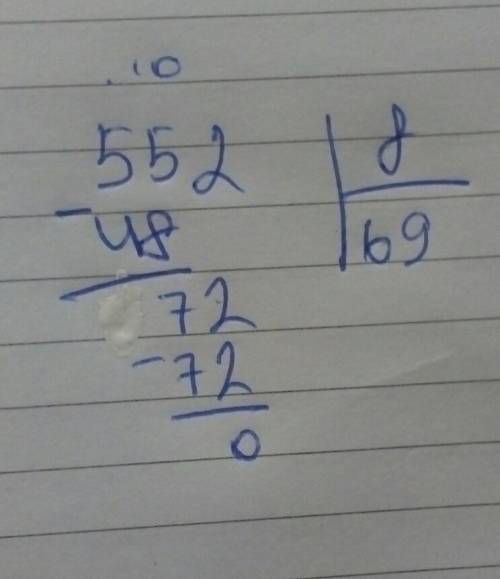 .10
552 | 8
-48 | 69
72
-72
0